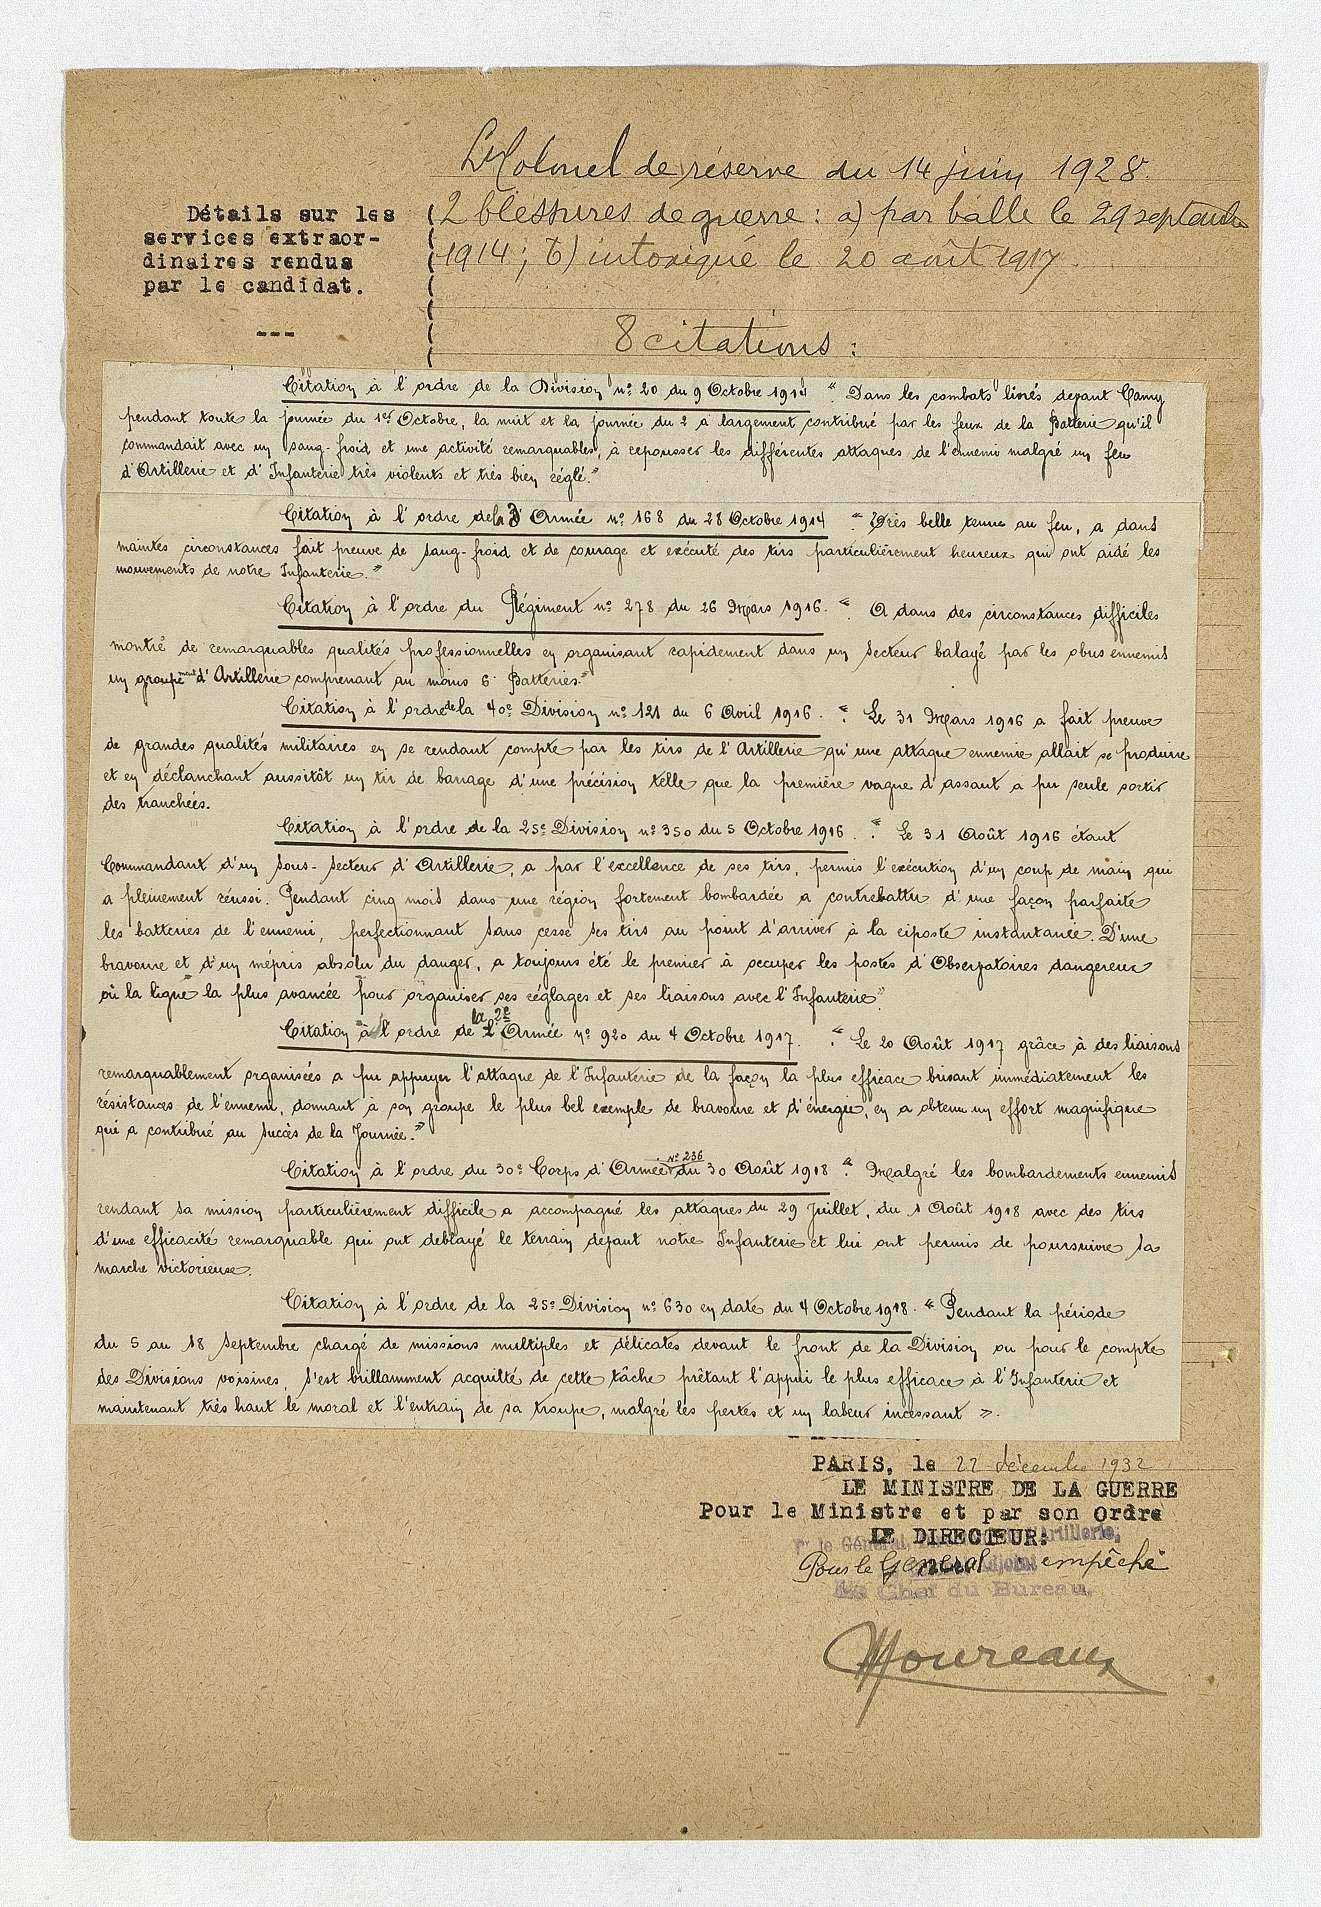 Lt Colonel de réserve du 14 juin 1928.
Détails sur les
services extraor-
dinaires rendus
par le candidat.
---
2 blessures de guerre : a) par balle le 29 septembre
1914 ; b) intoxiqué le 20 août 1917.
8 citations :
Citation à l'ordre de la Division n° 20 du 9 Octobre 1914 ". Dans les combats livrés devant Carny
pendant toute la journée du 1er Octobre, la nuit et la journée du 2 a largement contribué par les feux de la Batterie qu'il
commandait avec un sang-froid et une activité remarquables, à repousser les différentes attaques de l'ennemi malgré un feu
d'Artillerie et d'Infanterie très violents et très bien réglé."
Citation à l'ordre de la 2e Armée n° 168 du 28 Octobre 1914 " Très belle tenue au feu, a dans
maintes circonstances fait preuve de sang-froid et de courage et exécuté des tirs particulièrement heureux qui ont aidé les
mouvements de notre Infanterie."
Citation à l'ordre du Régiment n° 278 du 26 Mars 1916. " A dans des circonstances difficiles
montré de remarquables qualités professionnelles en organisant rapidement dans un secteur balayé par les obus ennemis
un groupement d'Artillerie comprenant au moins 6 Batteries."
Citation à l'ordre de la 40e Division n° 121 du 6 Avril 1916. ". Le 31 Mars 1916 a fait preuve
de grandes qualités militaires en se rendant compte par les tirs de l'Artillerie qu'une attaque ennemie allait se produire
et en déclanchant aussitôt un tir de barrage d'une précision telle que la première vague d'assaut a pu seule sortir
des tranchées.
Citation à l'ordre de la 25e Division n° 350 du 5 Octobre 1916. ". Le 31 Août 1916 étant
Commandant d'un Sous-Secteur d'Artillerie, a par l'excellence de ses tirs, permis l'exécution d'un coup de main qui
a pleinement réussi. Pendant cinq mois dans une région fortement bombardée a contrebattu d'une façon parfaite
les batteries de l'ennemi, perfectionnant sans cesse ses tirs au point d'arriver à la riposte instantanée. D'une
bravoure et d'un mépris absolu du danger, a toujours été le premier à occuper les postes d'Observatoires dangereux
où la ligne la plus avancée pour organiser ses réglages et ses liaisons avec l'Infanterie"
Citation à l'ordre de la 2e Armée n° 920 du 4 Octobre 1917. ". Le 20 Août 1917 grâce à des liaisons
remarquablement organisées a pu appuyer l'attaque de l'Infanterie de la façon la plus efficace brisant immédiatement les
résistances de l'ennemi, donnant à son groupe le plus bel exemple de bravoure et d'énergie, en a obtenu un effort magnifique
qui a contribué au succès de la Journée."
Citation à l'ordre du 30e Corps d'Armée N° 236 du 30 Août 1918 ". Malgré les bombardements ennemis
rendant sa mission particulièrement difficile a accompagné les attaques du 29 Juillet, du 1 Août 1918 avec des tirs
d'une efficacité remarquable qui ont déblayé le terrain devant notre Infanterie et lui ont permis de poursuivre sa
marche victorieuse.
Citation à l'ordre de la 25e Division n° 630 en date du 4 Octobre 1918. " Pendant la période
du 5 au 18 Septembre chargé de missions multiples et délicates devant le front de la Division ou pour le compte
des Divisions voisines, s'est brillamment acquitté de cette tâche prêtant l'appui le plus efficace à l'Infanterie et
maintenant très haut le moral et l'entrain de sa troupe, malgré les pertes et un labeur incessant ".
PARIS, le 22 décembre 1932
LE MINISTRE DE LA GUERRE
Pour le Ministre et par son Ordre
LE DIRECTEUR.
Pr le Général, Artillerie,
Pour le Général empêché
Le Chef du Bureau.
Moureaux